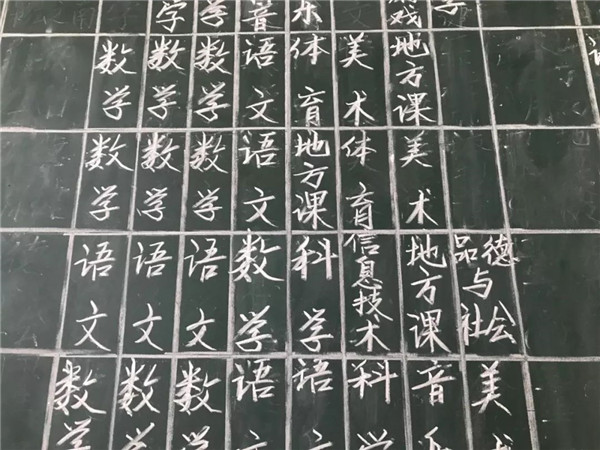 学 学 音 乐 戏
数学 数学 数学 语文 体育 美术 地方课
数学 数学 数学 语文 地方课 体育 美术
语文 语文 语文 数学 科学 信息技术 地方课 品德与社会
数学 数学 数学 语文 语文 科学 音 美